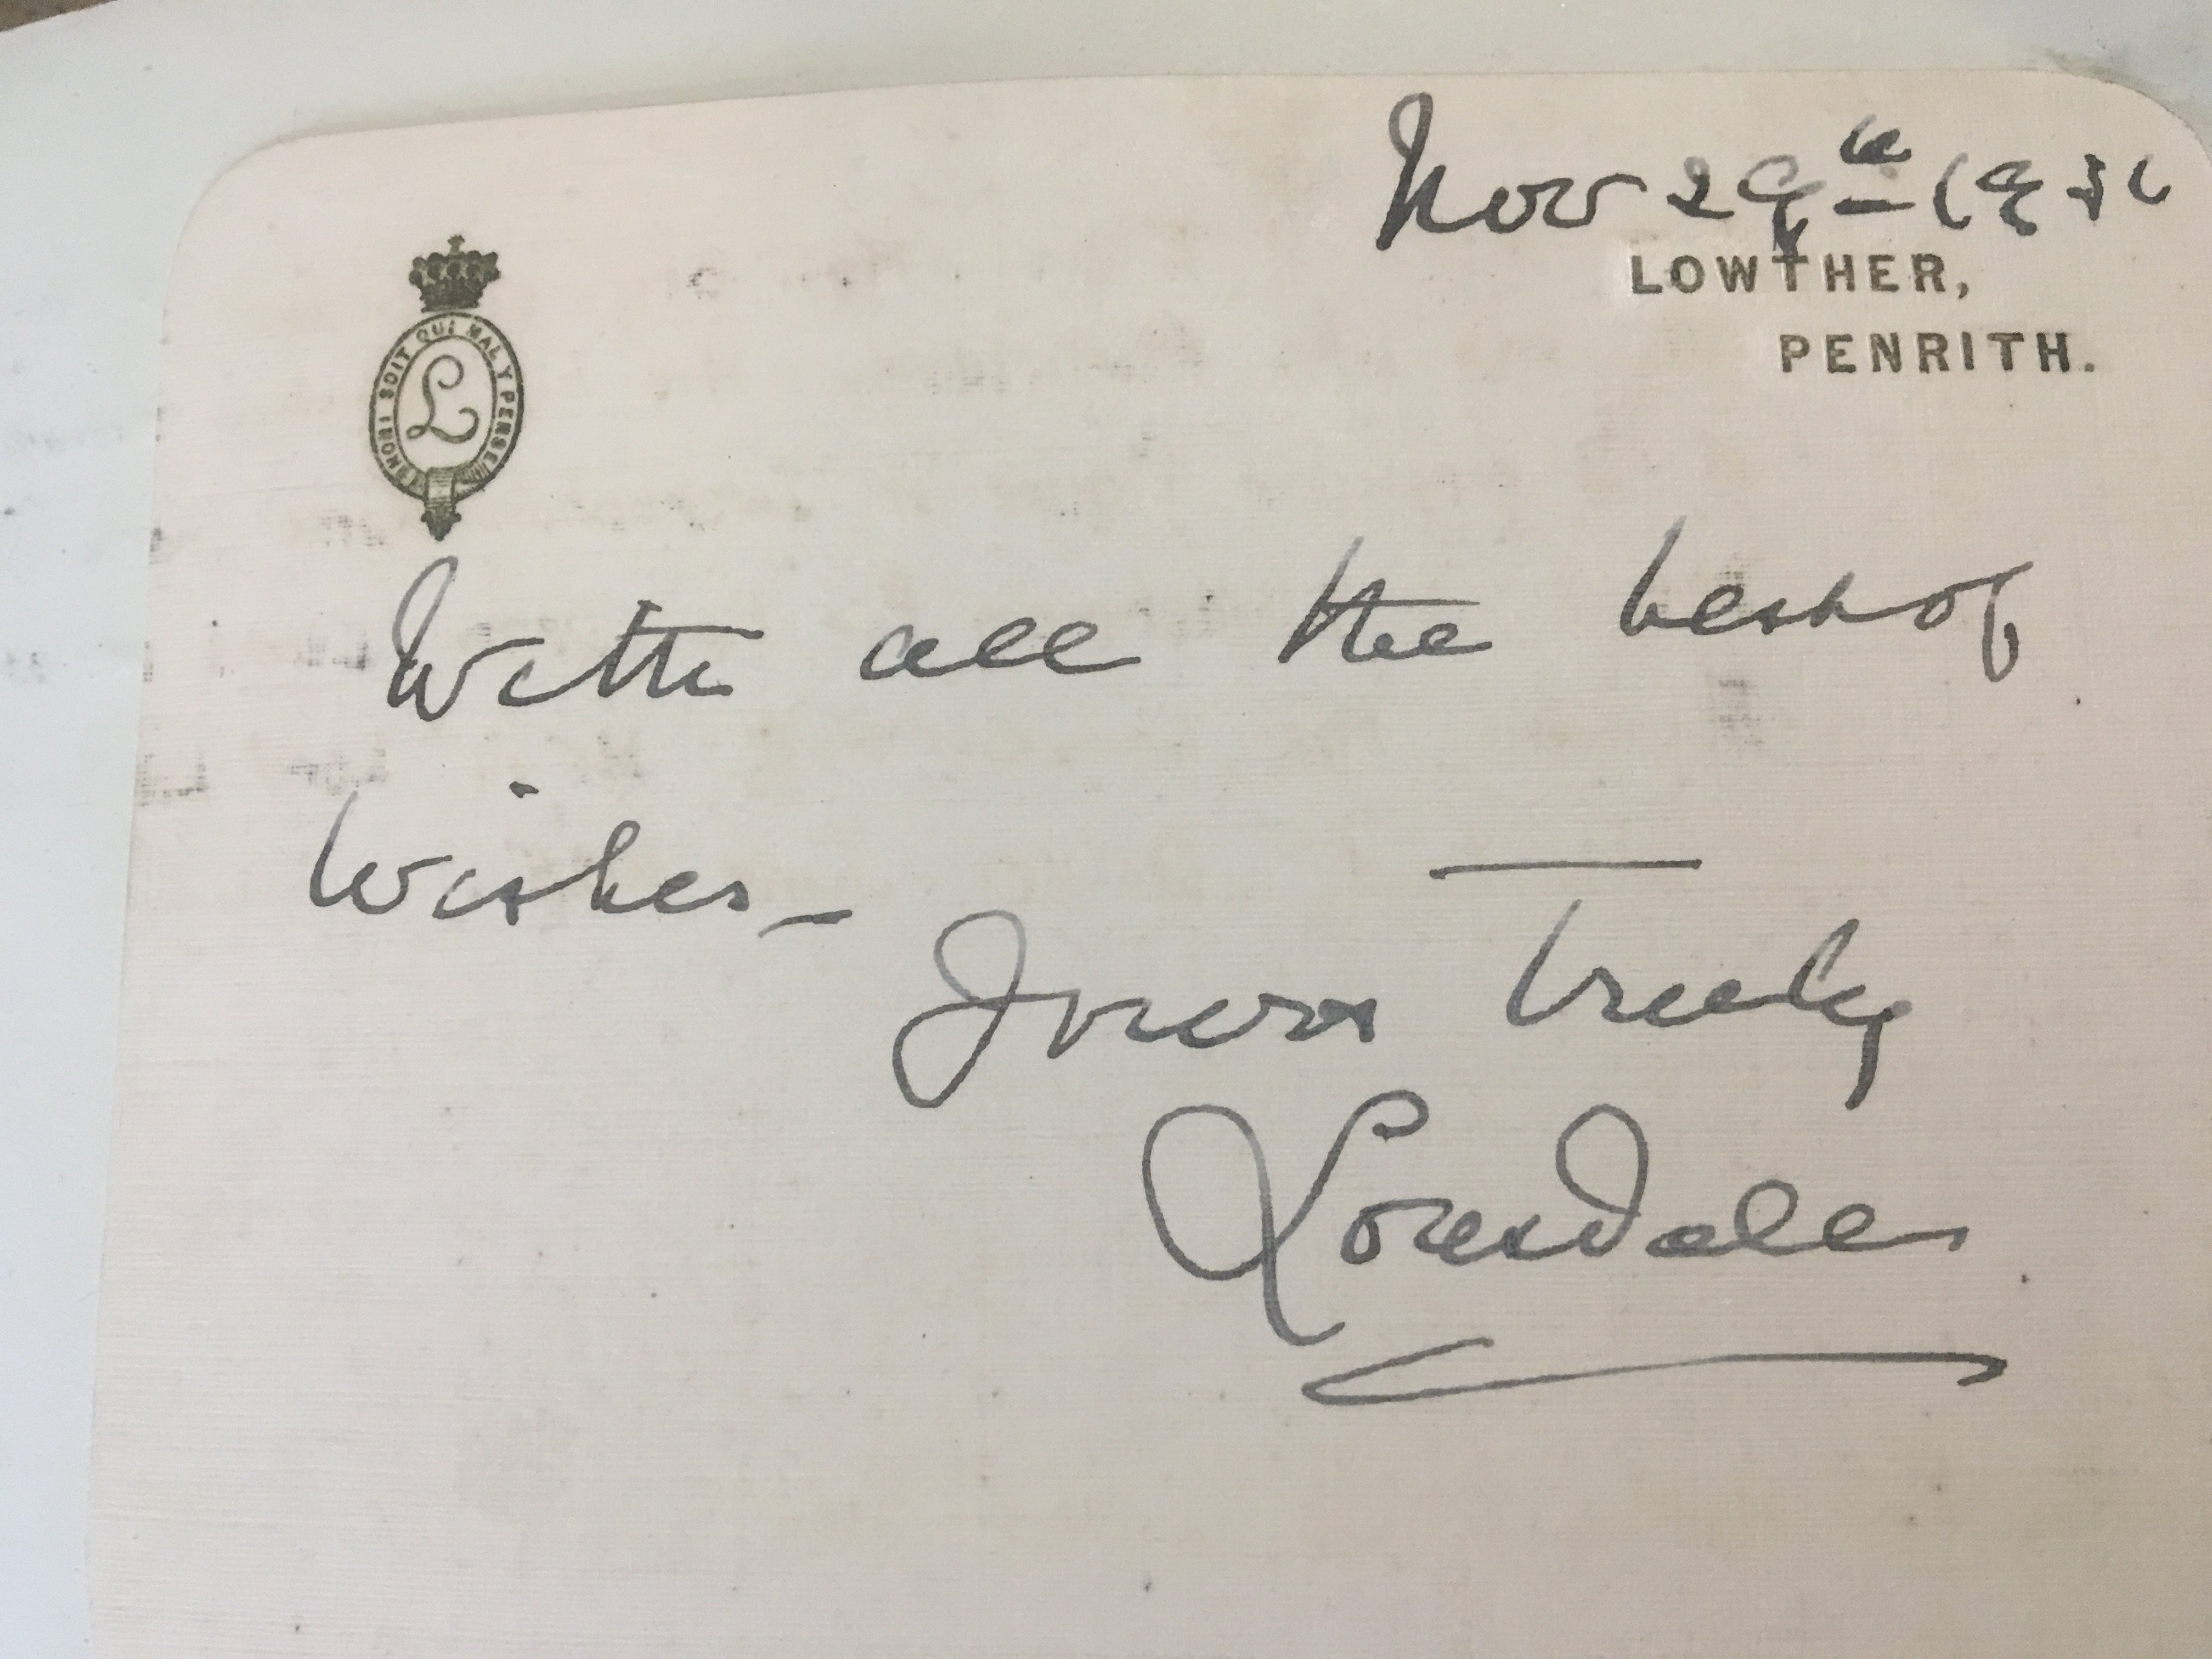 Nov 29th 193
LOWTHER,
PENRITH.
HONI SOIT QUI MAL Y PENSE
L
With all the best of
wishes –
Yours Truly
Lonsdale